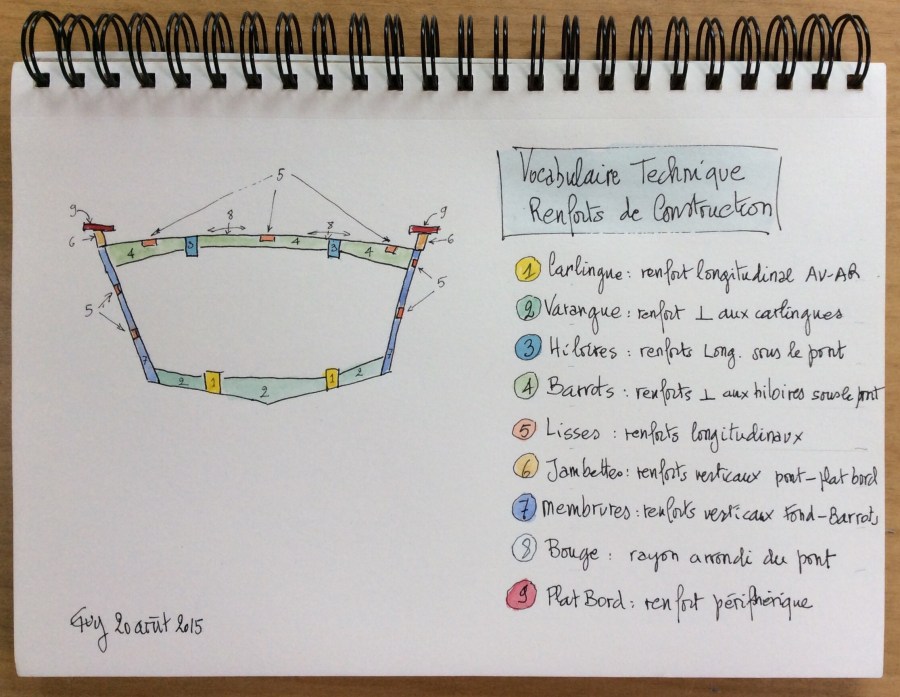 Vocabulaire Technique
Renforts de Construction
5
9
8
8
9
6
4
3
4
3
4
6
5
5
7
2
1
2
1
2
7
1 Carlingue : renfort longitudinal AV-AR
2 Varangue : renfort ⊥ aux carlingues
3 Hiloires : renforts Long. sous le pont
4 Barrots : renforts ⊥ aux hiloires sous le pont
5 Lisses : renforts longitudinaux
6 Jambettes : renforts verticaux pont-plat bord
7 membrures : renforts verticaux Fond-Barrots
8 Bouge : rayon arrondi du pont
9 Plat Bord : renfort périphérique
Guy 20 août 2015